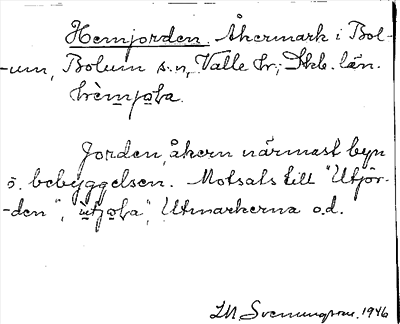 Hemjorden. Åkermark i Bol-
-um, Bolum s:n, Valle hr, Skb. län.
hèmjoḷa.
Jorden, åkern närmast byn
o. bebyggelsen. Motsats till "Utjor-
-den", ùtjoḷa", Utmarkerna o.d.
1946